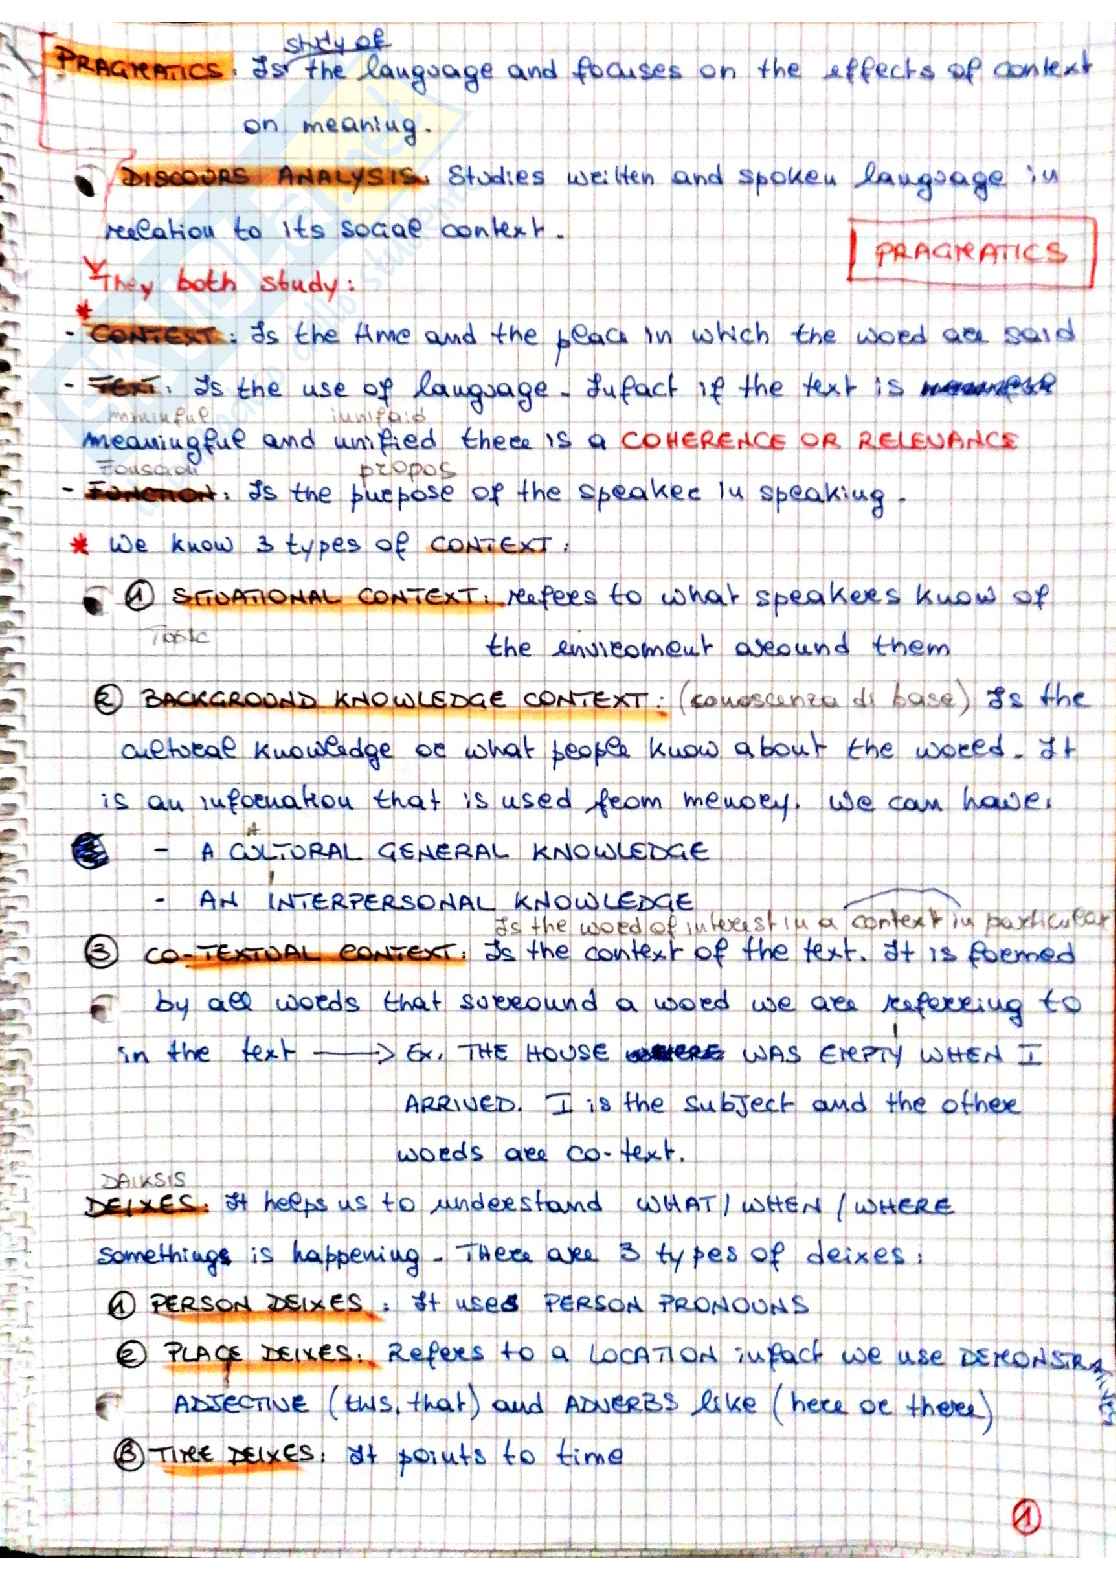 study of
PRAGMATICS: Is the language and focuses on the effects of context
on meaning.
DISCOURS ANALYSIS: Studies written and spoken language in
relation to its social context.
PRAGMATICS
They both study:
- CONTEXT: Is the time and the place in which the word are said
- TEXT: Is the use of language. Infact if the text is
minimful iunifaid
meaningful and unified there is a COHERENCE OR RELEVANCE
propos
- FUNCTION: Is the purpose of the speaker in speaking.
* We know 3 types of CONTEXT:
1 SITUATIONAL CONTEXT: refers to what speakers know of
the enviroment around them
2 BACKGROUND KNOWLEDGE CONTEXT: (conoscenza di base) Is the
cultural knowledge or what people know about the world. It
is an information that is used from memory. We can have:
- A CULTURAL GENERAL KNOWLEDGE
- AN INTERPERSONAL KNOWLEDGE
Is the word of interest in a context in particular
3 CO-TEXTUAL CONTEXT: Is the context of the text. It is formed
by all words that surround a word we are referring to
in the text → Ex. THE HOUSE WAS EMPTY WHEN I
ARRIVED. I is the subject and the other
words are co-text.
DAIKSIS
DEIXES: It helps us to understand WHAT/WHEN/WHERE
somethings is happening. There are 3 types of deixes:
1 PERSON DEIXES: It uses PERSON PRONOUNS
2 PLACE DEIXES: Refers to a LOCATION infact we use DEMONSTRATIVES
ADJECTIVE (this, that) and ADVERBS like (here or there)
3 TIME DEIXES: It points to time
1